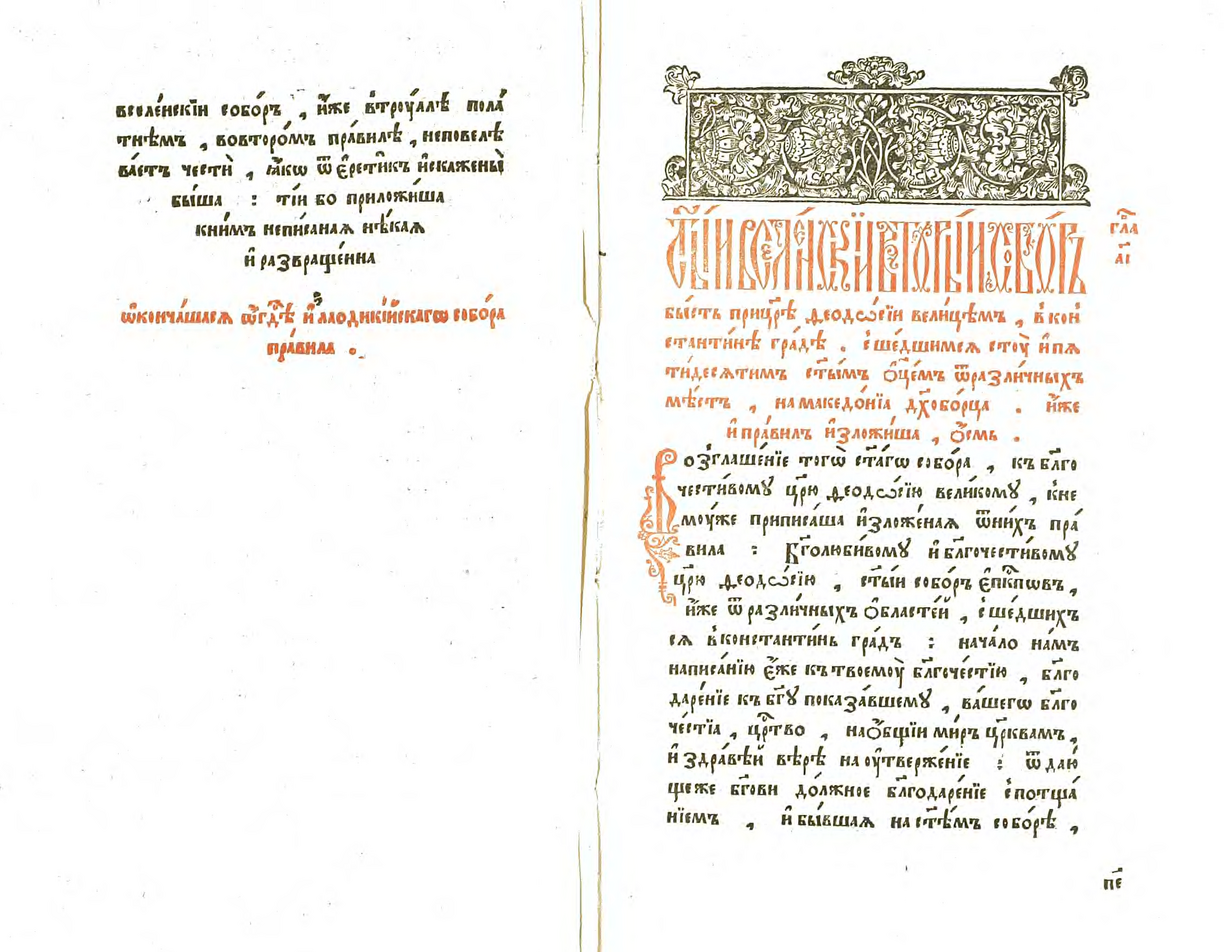 вселе́нскїи собо́ръ , и҆́же в̾троу́ллѣ пола́
тнѣмъ , вовторо́мъ пра́вилѣ , неповелѣ
ва́етъ честѝ , ꙗ҆́кѡ ѿ є҆рети́къ и҆скаже́ны̀
бы́ша : ті́и бо приложи́ша
кни́мъ непи́саная нѣ́кая
и҆ развраще́нна
ѡ҆конча́шася ѡ҆́гдⷭ҇ѣ и҆ лаодикі́искагѡ собо́ра
пра́вила .
ст҃ы́и вселе́нскїи вторы́и собо́ръ
гла҃
а҃і
бы́сть прицр҃ѣ ѳеодо́сїи вели́цѣмъ , в̾кон
стантинѣ гра́дѣ . с̾ше́дшимся стоу̀ и҆ пя
ти́деся́тимъ ст҃ы́мъ ѻ҆ц҃е́мъ ѿразли́чныхъ
мѣ́стъ , на македо́нїа дх҃обо́рца . и҆́же
и҆ пра́вилъ и҆зложи́ша , ѻ҆́смь .
Возглаше́нїе тогѡ̀ ст҃а́гѡ собо́ра , къ бл҃го
чести́вому цр҃ю ѳеодо́сїю вели́кому , к̾не
моу́же приписа́ша и҆зложе́ная ѿни́хъ пра́
вила : Бг҃олюби́вому и҆ бл҃гочести́вому
цр҃ю ѳеодо́сїю , ст҃ы́и собо́ръ є҆пⷭ҇кпѡвъ ,
и҆́же ѿ разли́чныхъ ѻ҆бласте́й , с̾ше́дших̾
ся в̾константи́нь гра́дъ : нача́ло на́мъ
написа́нїю є҆́же къ твоемоу̀ бл҃гоче́стїю , бл҃го
даре́нїе къ бг҃у показа́вшему , ва́шегѡ бл҃го
че́стїа , црⷭ҇тво , на ѻ҆́бщїи ми́ръ цр҃квамъ ,
и҆ здра́вѣй вѣ́рѣ на оу҆тверже́нїе : ѿ даю́
щеже бг҃ови до́лжное бл҃годаре́нїе с̾потща́
нїемъ , и҆ бы́вшая на ст҃ѣ́мъ собо́рѣ ,
пє҃